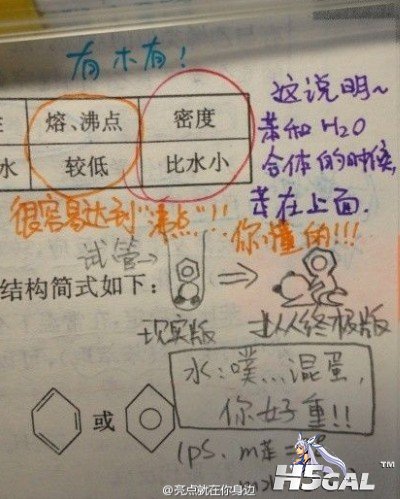 有木有！
熔、沸点
密度
水
较低
比水小
这说明~
苯和H2O
合体的时候,
苯在上面.
很容易达到"沸点"!!
你懂的!!!
试管→
结构简式如下：
现实版
终极版
水:噗…混蛋,
你好重!!
或
(ps. m苯=
@亮点就在你身边
H5GAL
TM